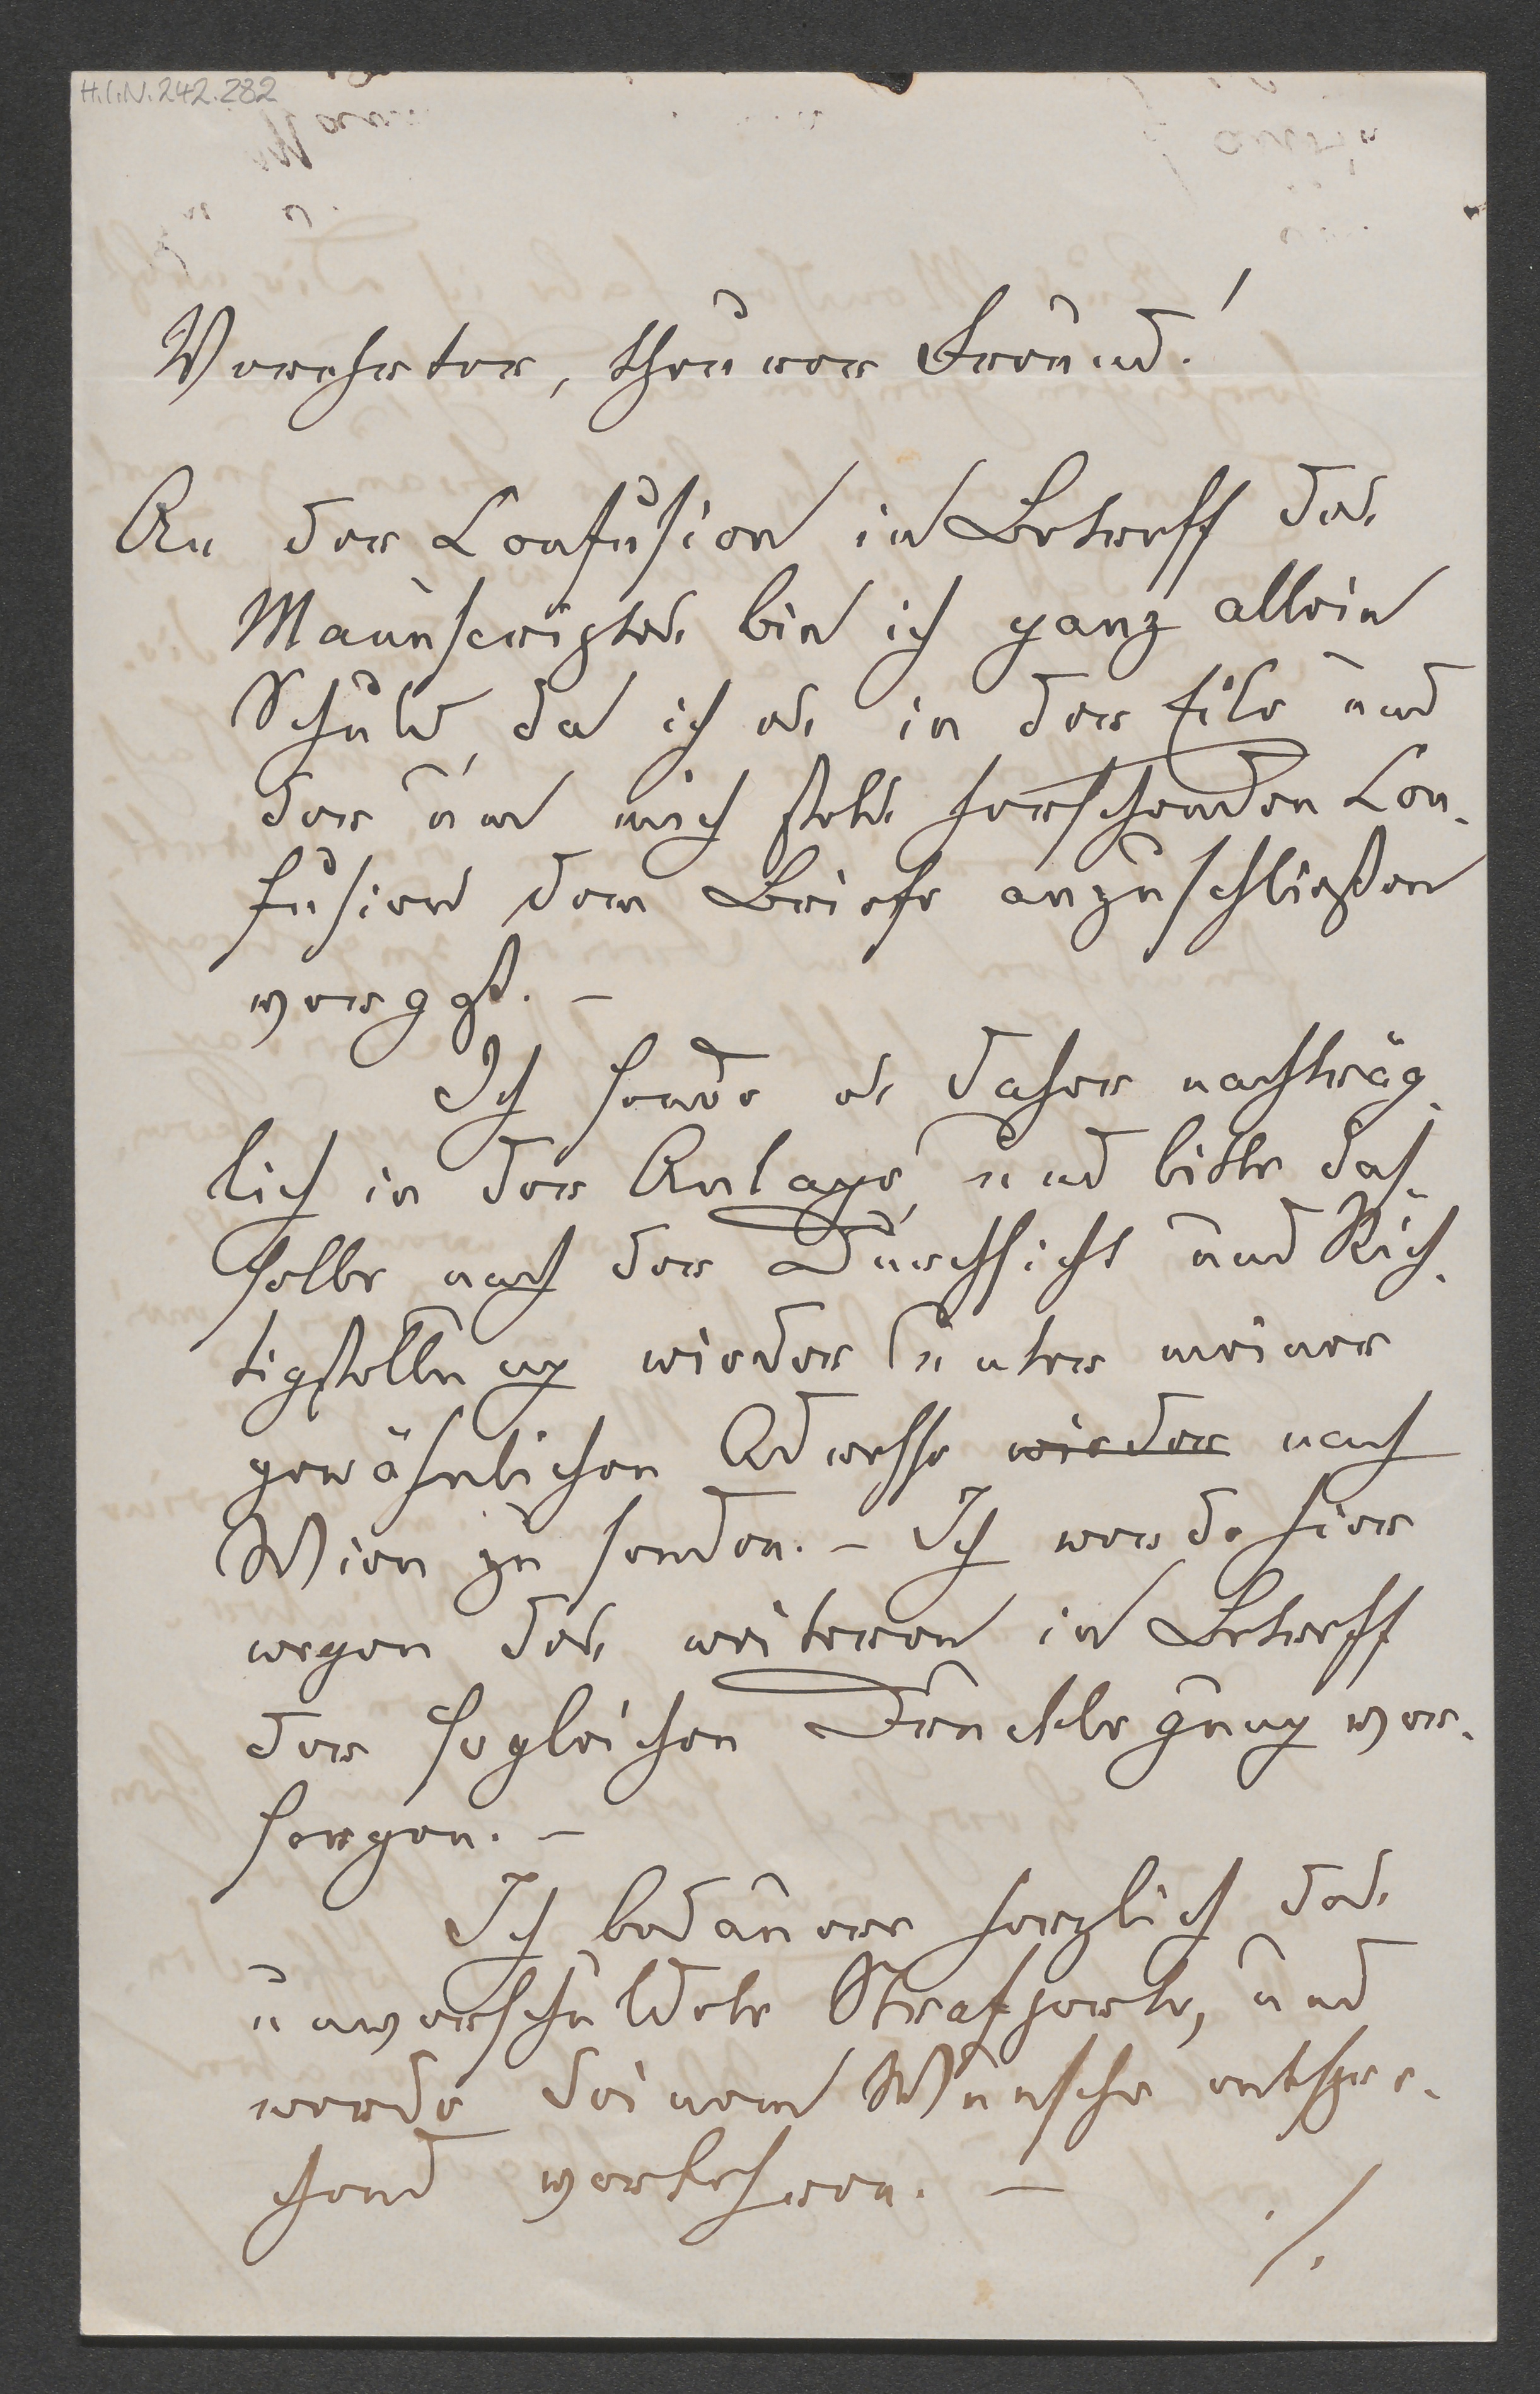 H.I.N. 242.282
Verehrter, theurer Freund!
An der Confusion in Betreff des
Manuscriptes bin ich ganz allein
Schuld, da ich es in der Eile und
der um mich stets herschenden Con-
fusion dem Briefe anzuschließen
vergaß. –
Ich sende es daher nachträg-
lich in der Anlage, und bitte das-
selbe nach der Durchsicht und Rich-
tigstellung wieder unter meiner
gewöhnlichen Adresse wieder nach
Wien zu senden. – Ich werde hier
wegen des weiteren in Betreff
der sogleichen Drucklegung vor-
sorgen. –
Ich bedauere herzlich das
unverschuldete Strafporto, und
werde deinem Wunsche entspre-
chend verkehren. –
./.